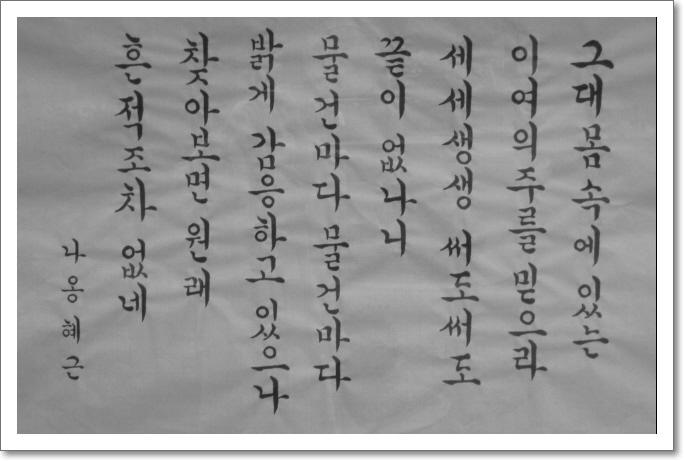 그대 몸 속에 있는
이 여의주를 믿으라
세세생생 써도 써도
끝이 없나니
물건마다 물건마다
밝게 감응하고 있으나
찾아보면 원래
흔적조차 없네
나옹혜근